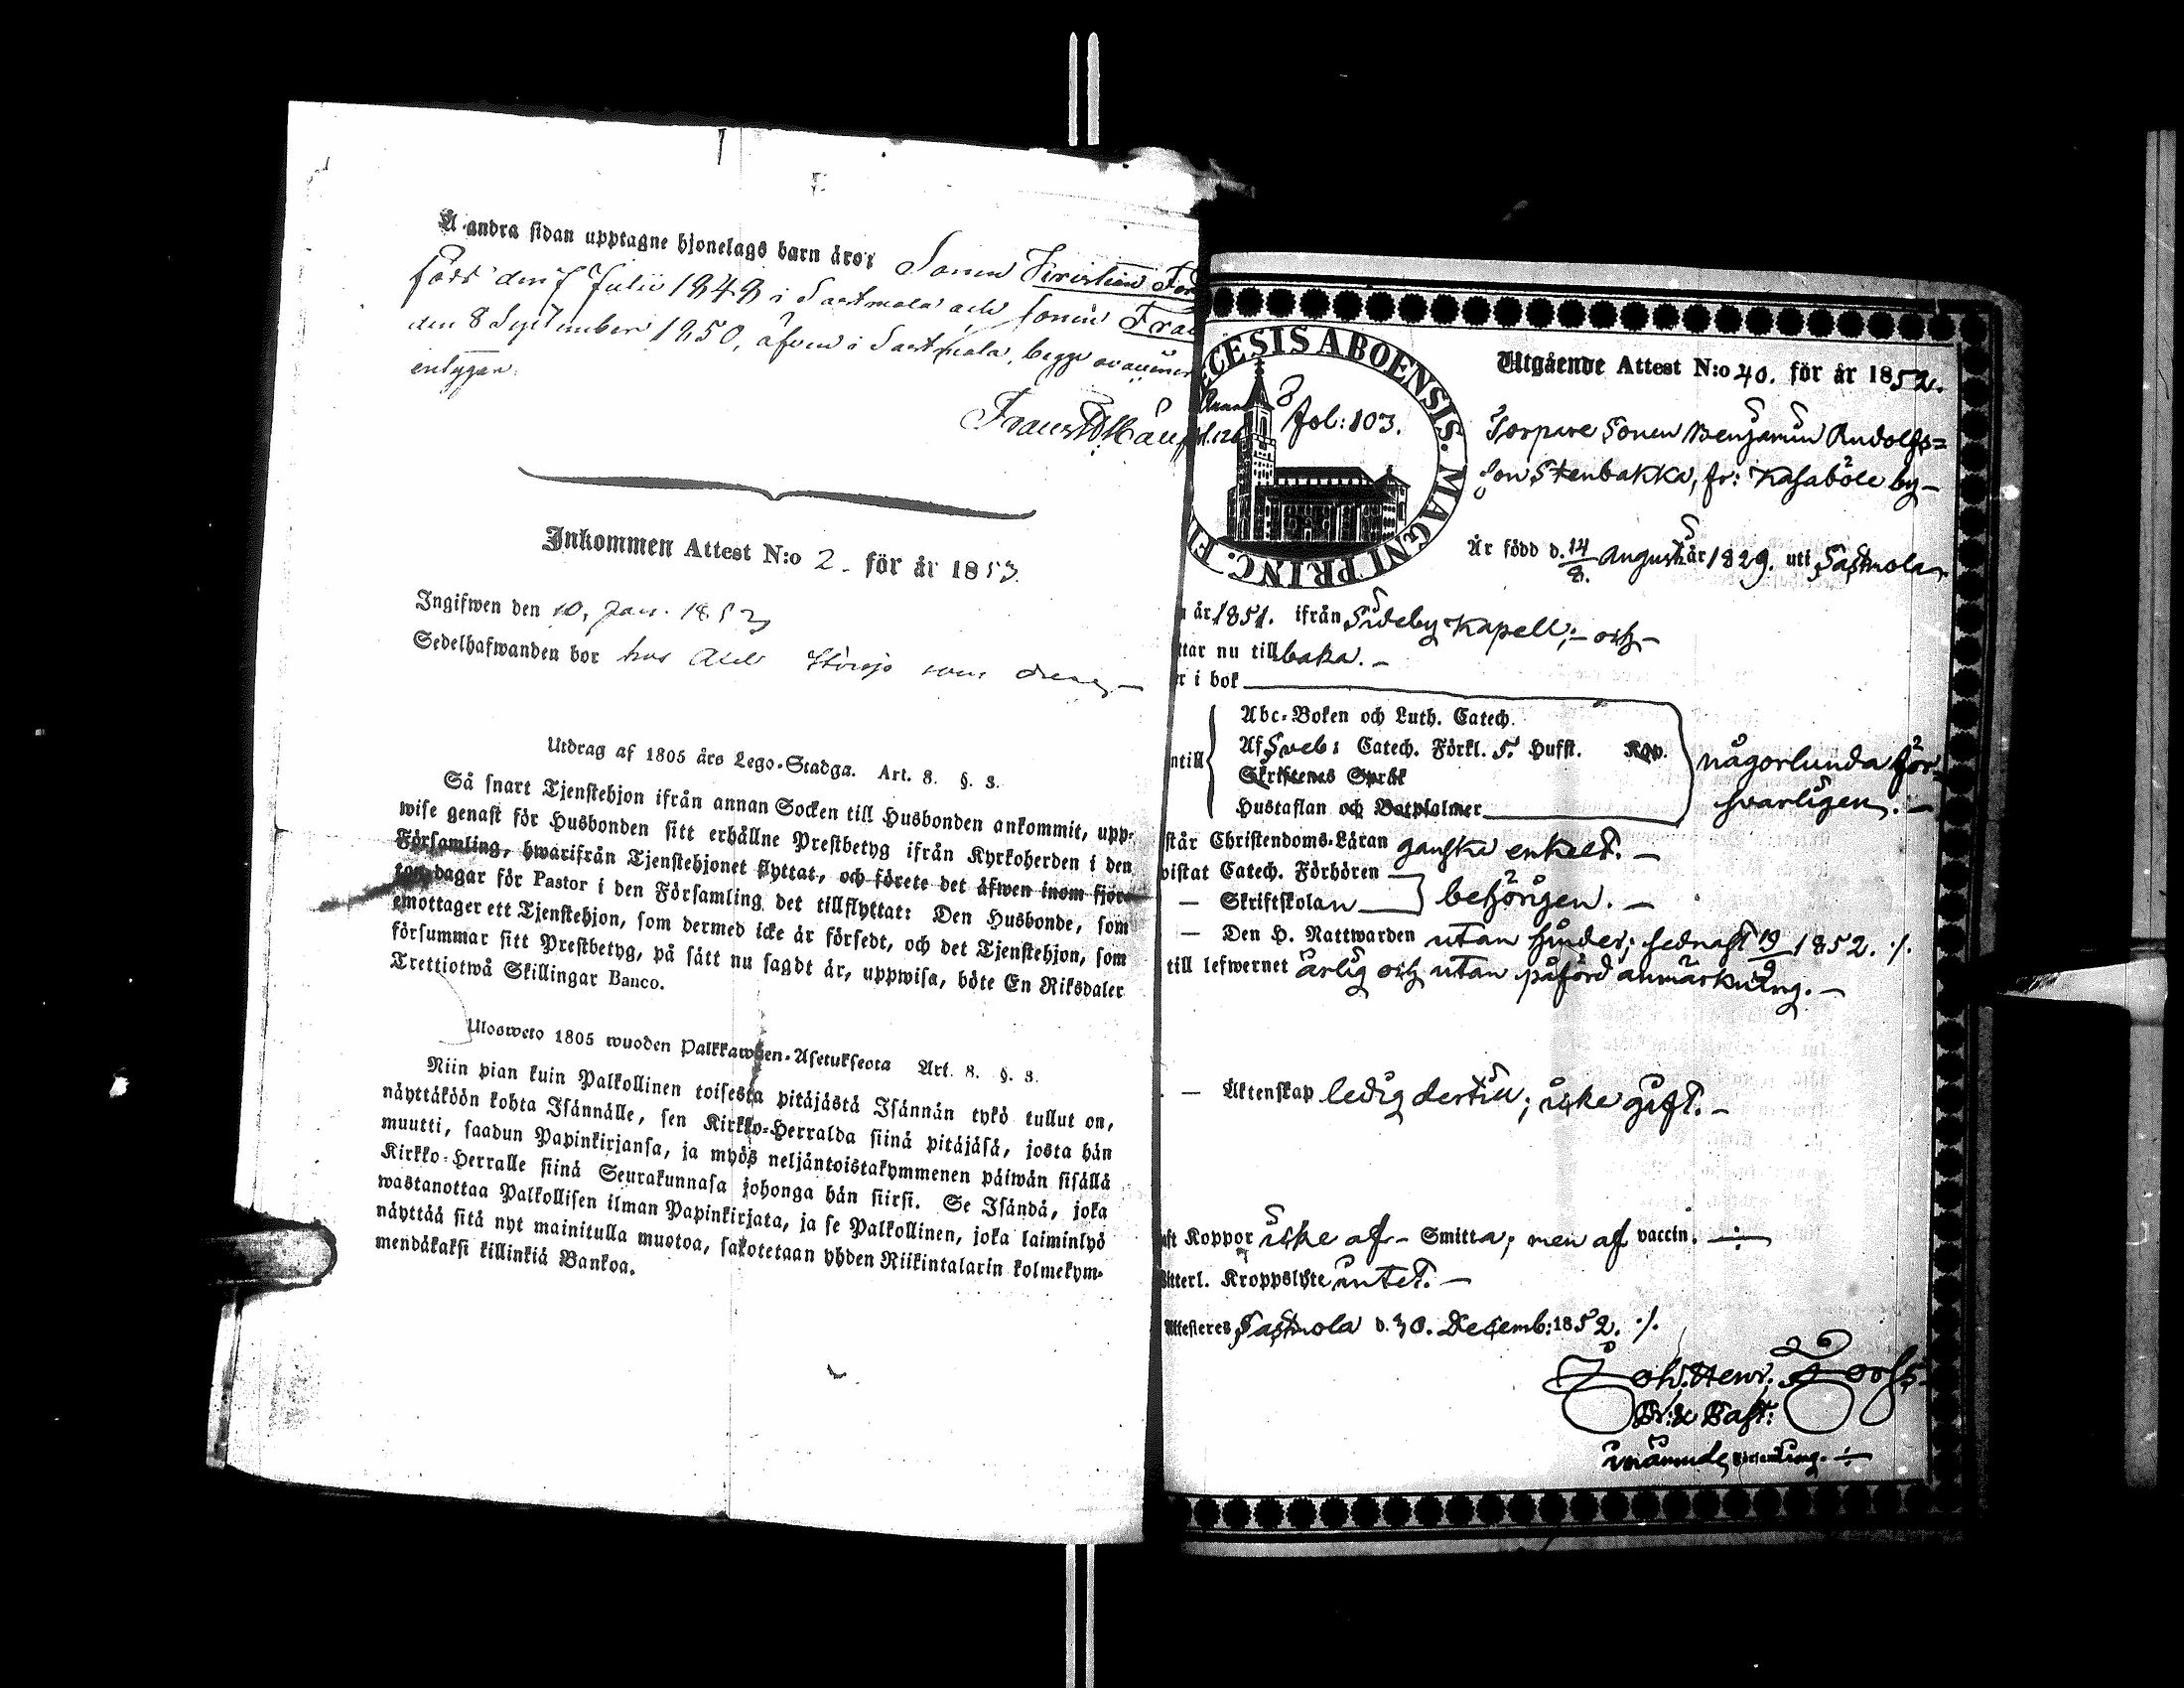 Å andra sidan upptagne hjonelags barn äro: Sonen Kristian
född den 7 Julii 1848 i Sastmola och sonen
den 8 September 1850, äfven i Sastmola, begge
intygar.
Frans
Inkommen Attest N:o 2. för år 1853.
Ingifwen den 10. Jan. 1853
Sedelhafwanden bor hos som dreng
Utdrag af 1805 års Lego-Stadga. Art. 8. §. 3.
Så snart Tjenstehjon ifrån annan Socken till Husbonden ankommit, upp-
wise genast för Husbonden sitt erhållne Prestbetyg ifrån Kyrkoherden i den
Församling, hwarifrån Tjenstehjonet flyttat, och förete det äfwen inom fjor-
ton dagar för Pastor i den Församling det tillflyttat: Den Husbonde, som
emottager ett Tjenstehjon, som dermed icke är försedt, och det Tjenstehjon, som
försummar sitt Prestbetyg, på sätt nu sagdt är, uppwisa, böte En Riksdaler
Trettiotwå Skillingar Banco.
Ulosweto 1805 wuoden Palkkawäen-Asetuksesta Art. 8. §. 3.
Niin pian kuin Palkollinen toisesta pitäjästä Isännän tykö tullut on,
näyttäköön kohta Isännälle, sen Kirkko-Herralda siinä pitäjäsä, josta hän
muutti, saadun Papinkirjansa, ja myös neljäntoistakymmenen päiwän sisällä
Kirkko-Herralle siinä Seurakunnasa johonga hän siirsi. Se Isändä, joka
wastanottaa Palkollisen ilman Papinkirjata, ja se Palkollinen, joka laiminlyö
näyttää sitä nyt mainitulla muotoa, sakotetaan yhden Riikintalarin kolmekym-
mendäkaksi killinkiä Bankoa.
ECESIS ABOENSIS. MAGNI PRINC. FI
fol: 103.
Utgående Attest N:o 40. för år 1852.
Torpare Sonen Benjamin Rudolfs=
son Stenbakka, fr: Kasaböle by—
Är född d. 14/8. Augusti år 1829. uti Sastmola
år 1851. ifrån Sideby Kapell;— och—
ttar nu tillbaka.—
r i bok
Abc-Boken och Luth. Catech.
Af Sveb: Catech. Förkl. 5. Hufst. Kap.
Skriftenes Språk
Hustaflan och Botpsalmer
ntill
någorlunda för-
svarligen.—
står Christendoms-Läran ganska enkelt.—
vistat Catech. Förhören
— Skriftskolan
behörigen.—
— Den H. Nattwarden utan hinder; sednast 19/ 1852. ./.
till lefwernet ärlig och utan påförd anmärkning.—
. — Äktenskap ledig dertill; icke gift.—
aft Koppor icke af— Smitta; men af vaccin.
Bitterl. Kroppslyte intet.—
Attesteras Sastmola d. 30. Decemb: 1852. ./.
Joh. Henr. Forss.
Pr: & Past: